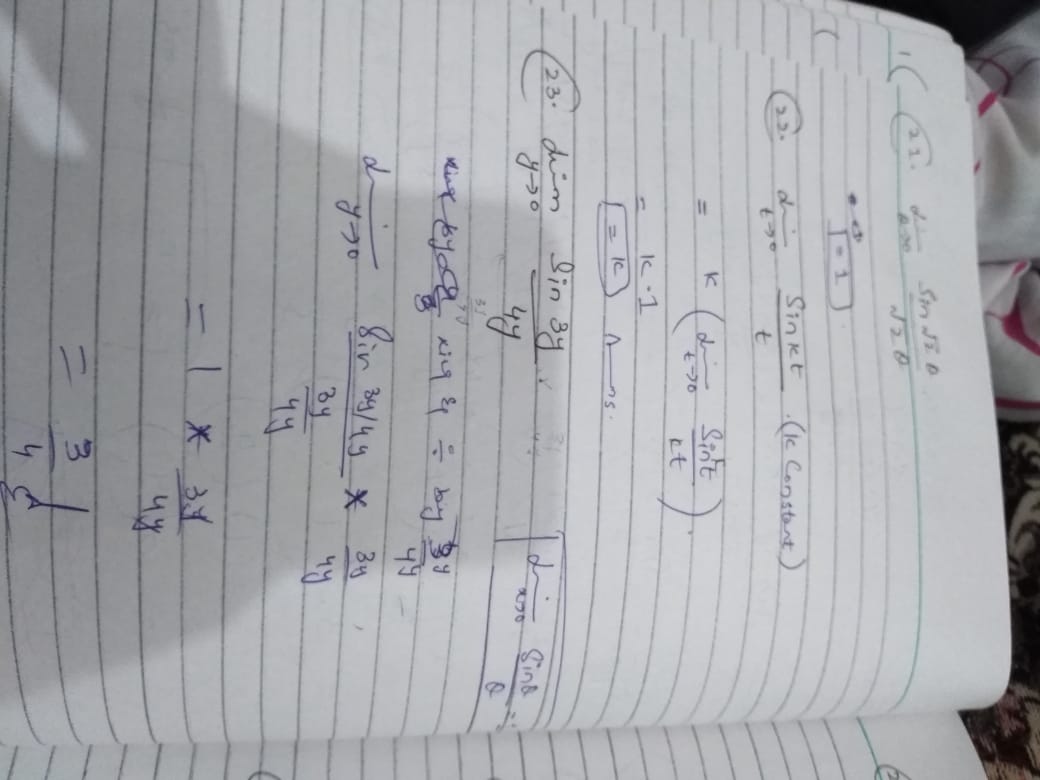 21. lim θ→0 sin√2 θ / √2 θ
= 1
22. lim t→0 Sin kt / t . (k Constant)
= k ( lim t→0 Sin t / kt ) .
= k . 1
= k Ans.
23. lim y→0 Sin 3y / 4y
lim x→0 Sin θ / θ =
xing & ÷ by 3y / 4y
lim y→0 Sin 3y/4y / 3y/4y * 3y / 4y
= 1 * 3y / 4y
= 3 / 4